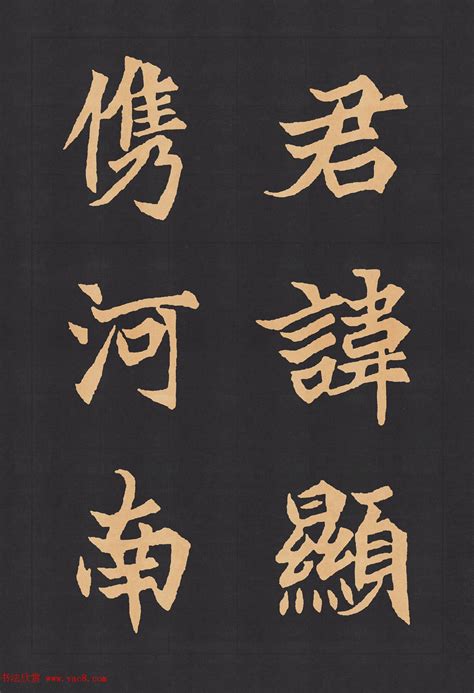 君諱顯
儁河南
书法欣赏 www.yac8.com